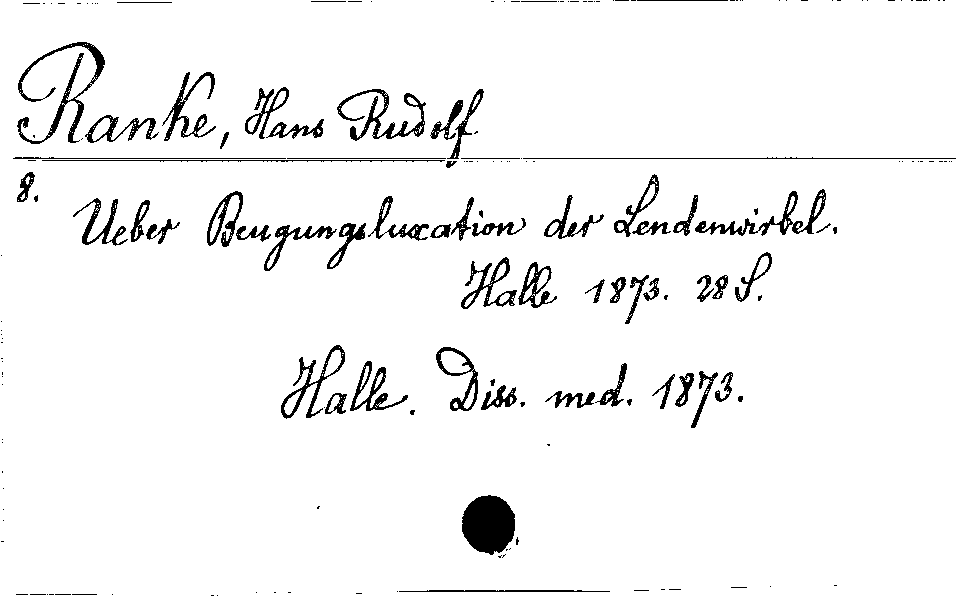 Ranke, Hans Rudolf
8.
Ueber Beugungsluxation der Lendenwirbel.
Halle 1873. 28 S.
Halle. Diss. med. 1873.